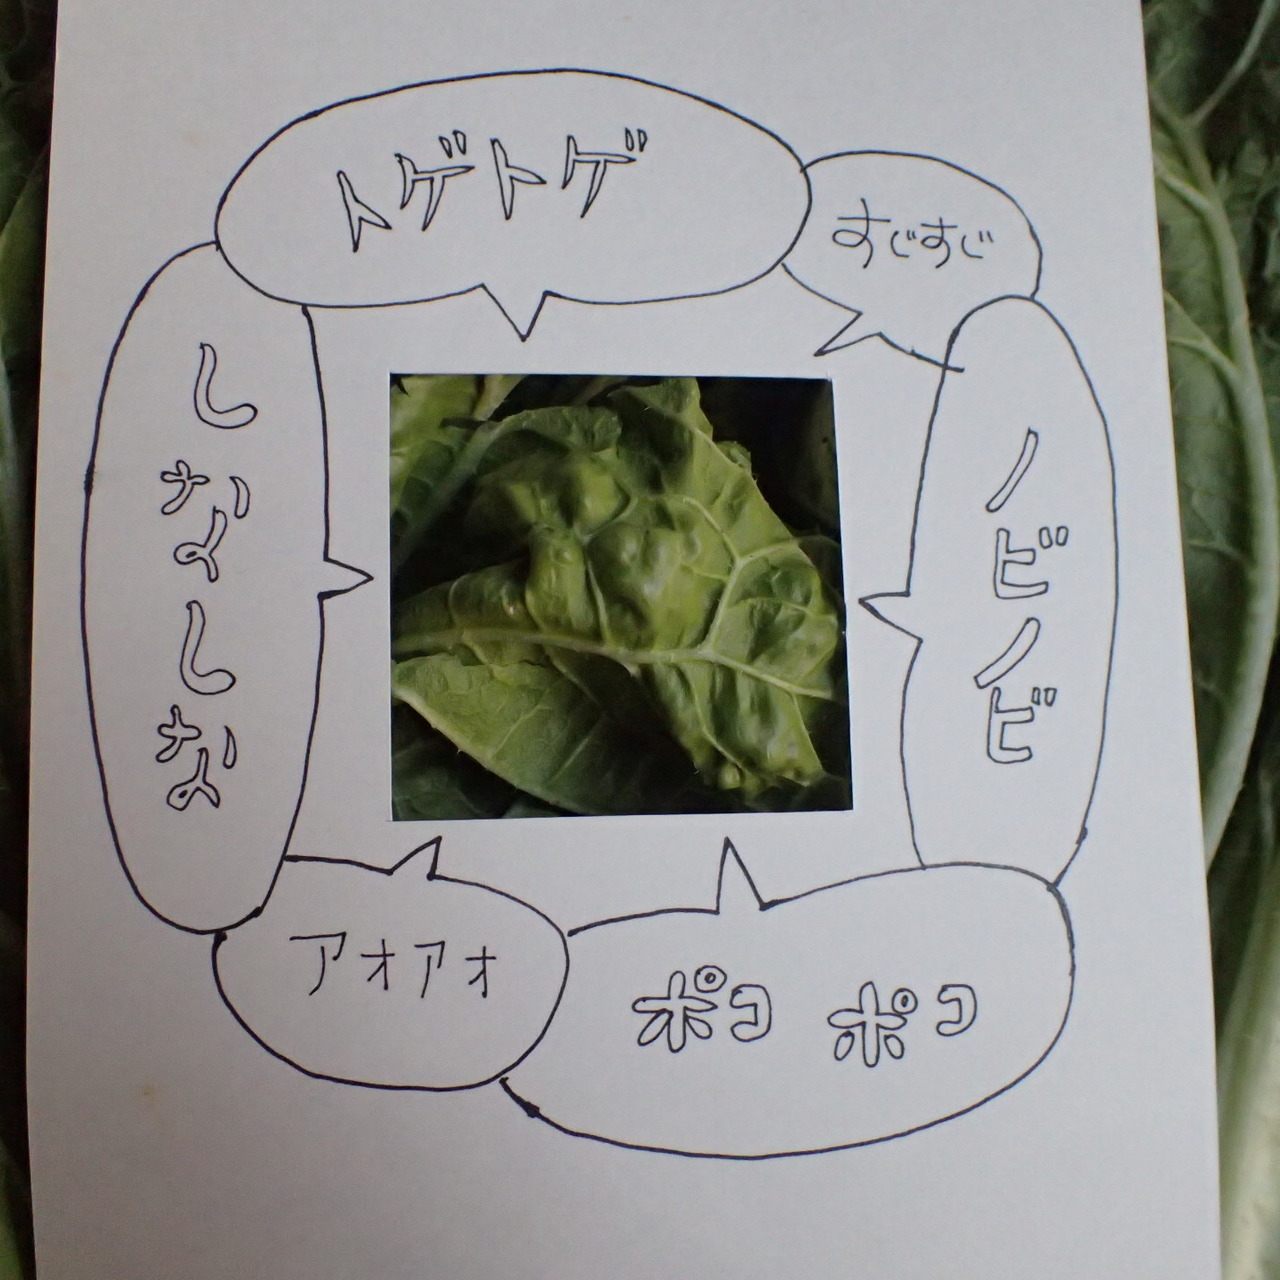 トゲトゲ
すじすじ
しなしな
ノビノビ
アオアオ
ポコポコ